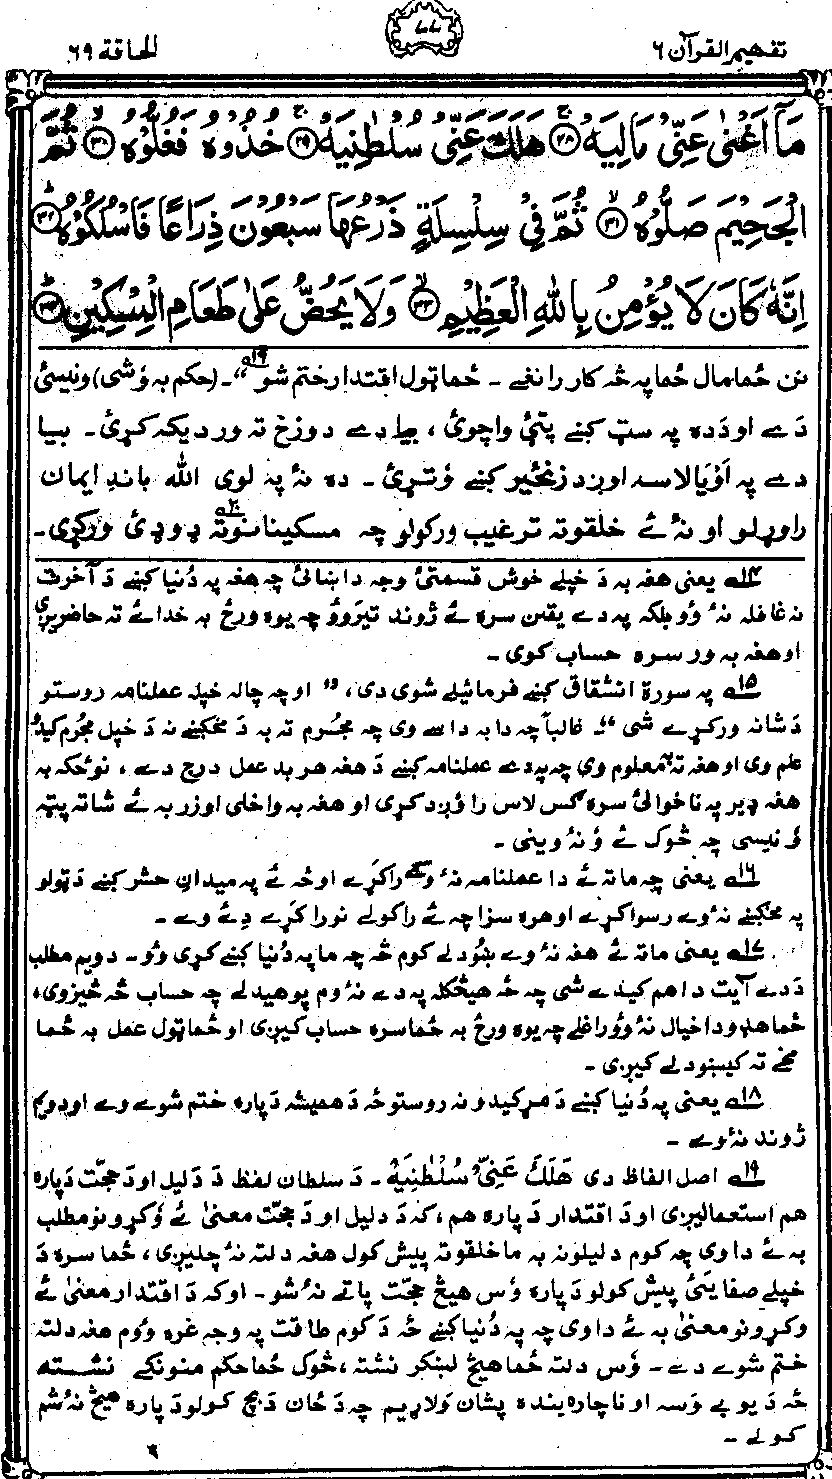 تفهيم القرآن ۶
الحاقة ۶۹
مَآ اَغْنٰى عَنِّىْ مَالِيَهْ ﴿۲۸﴾ هَلَكَ عَنِّىْ سُلْطٰنِيَهْ ﴿۲۹﴾ خُذُوْهُ فَغُلُّوْهُ ﴿۳۰﴾ ثُمَّ
الْجَحِيْمَ صَلُّوْهُ ﴿۳۱﴾ ثُمَّ فِىْ سِلْسِلَةٍ ذَرْعُهَا سَبْعُوْنَ ذِرَاعًا فَاسْلُكُوْهُ ﴿۳۲﴾
اِنَّهٗ كَانَ لَا يُؤْمِنُ بِاللّٰهِ الْعَظِيْمِ ﴿۳۳﴾ وَلَا يَحُضُّ عَلٰى طَعَامِ الْمِسْكِيْنِ ﴿۳۴﴾
نن ځما مال ځما په څه کار رانغے ۔ ځما ټول اقتدار ختم شو ۱۹؎"۔ (حکم به وُشی) ونیسئ
دَے او دَده په سټ کښے پټئ واچوئ ، بیا دے دوزخ ته ور دیکه کړئ ۔ بیا
دے په اَوْیَا لاسه اوږد زنځیر کښے وُتړئ ۔ ده نهٔ په لوی الله باندِ ایمان
راوړلو او نهٔ ئے خلقو ته ترغیب ورکولو چه مسکینانو ته ۲۰؎ ډوډئ ورکړی۔
۱۴؎ یعنی هغه به دَ خپلے خوش قسمتئ وجه دا ښائی چه هغه په دُنیا کښے دَ آخرت
نه غافله نهٔ وُو بلکه په دے یقین سره ئے ژوند تیرَووُ چه یوه ورځ به خدائے ته حاضریږی
او هغه به ور سره حساب کوی ۔
۱۵؎ په سورة انشقاق کښے فرمائیلے شوی دی، "او چه چاله خپله عملنامه روستو
دَ شانه ورکړے شی"۔ غالباً چه دا به داسے وی چه مجُرم ته به دَ مخکښے نه دَ خپل مجُرم کیدُ
علم وی او هغه ته به معلوم وی چه په دے عملنامه کښے دَ هغه هر بد عمل درج دے ، نو ځکه به
هغه ډیر په ناخوالئ سره ګس لاس راوُړد کړی او هغه به واخلی او زر به ئے شاته پټه
وُنیسی چه څوک ئے وُنهٔ وینی ۔
۱۶؎ یعنی چه ماته ئے دا عملنامه نهٔ وے راکړے او ځه ئے په میدانِ حشر کښے دَ ټولو
په مخکښے نهٔ وے رسوا کړے او هره سزا چه ئے راکولے نو راکړے دِے وے ۔
۱۷؎ یعنی ماته ئے هغه نهٔ وے ښوُد لے کوم څه چه ما په دُنیا کښے کړی وُو ۔ دویم مطلب
دَدے آیت دا هم کیدے شی چه ځه هیڅکله په دے نهٔ وم پوهیدلے چه حساب څه څیز وی،
ځما هډو دا خیال نهٔ وُو راغلے چه یوه ورځ به ځما سره حساب کیږی او ځما ټول عمل به ځما
مخے ته کیښودلے کیږی ۔
۱۸؎ یعنی په دُنیا کښے دَ مرکیدو نه روستو ځه دَ همیشه دَ پاره ختم شوے وے او دویم
ژوند نهٔ وے ۔
۱۹؎ اصل الفاظ دی هَلَكَ عَنِّىْ سُلْطٰنِيَهْ ۔ دَ سلطان لفظ دَ دَلیل او دَ حجّت دَ پاره
هم استعمالیږی او دَ اقتدار دَ پاره هم ، که دَ دلیل او دَ حجّت معنیٰ ئے وُکړو نو مطلب
به ئے دا وی چه کوم دلیلونه به ما خلقو ته پیش کول هغه دلته نهٔ چلیږی ، ځما سره دَ
خپلے صفایئ پیش کولو دَ پاره وُس هیڅ حجّت پاتے نهٔ شو ۔ او که دَ اقتدار معنیٰ ئے
وکړو نو معنیٰ به ئے دا وی چه په دُنیا کښے ځه دَ کوم طاقت په وجه غره وُوم هغه دلته
ختم شوے دے ۔ وُس دلته ځما هیڅ لښکر نشته ، څوک ځما حکم منونکے نشته
ځه دَ یو بے وَسه او ناچاره بنده پشان وَلاړیم چه دَ ځان دَ بچ کولو دَ پاره هیڅ نهٔ شم
کولے ۔